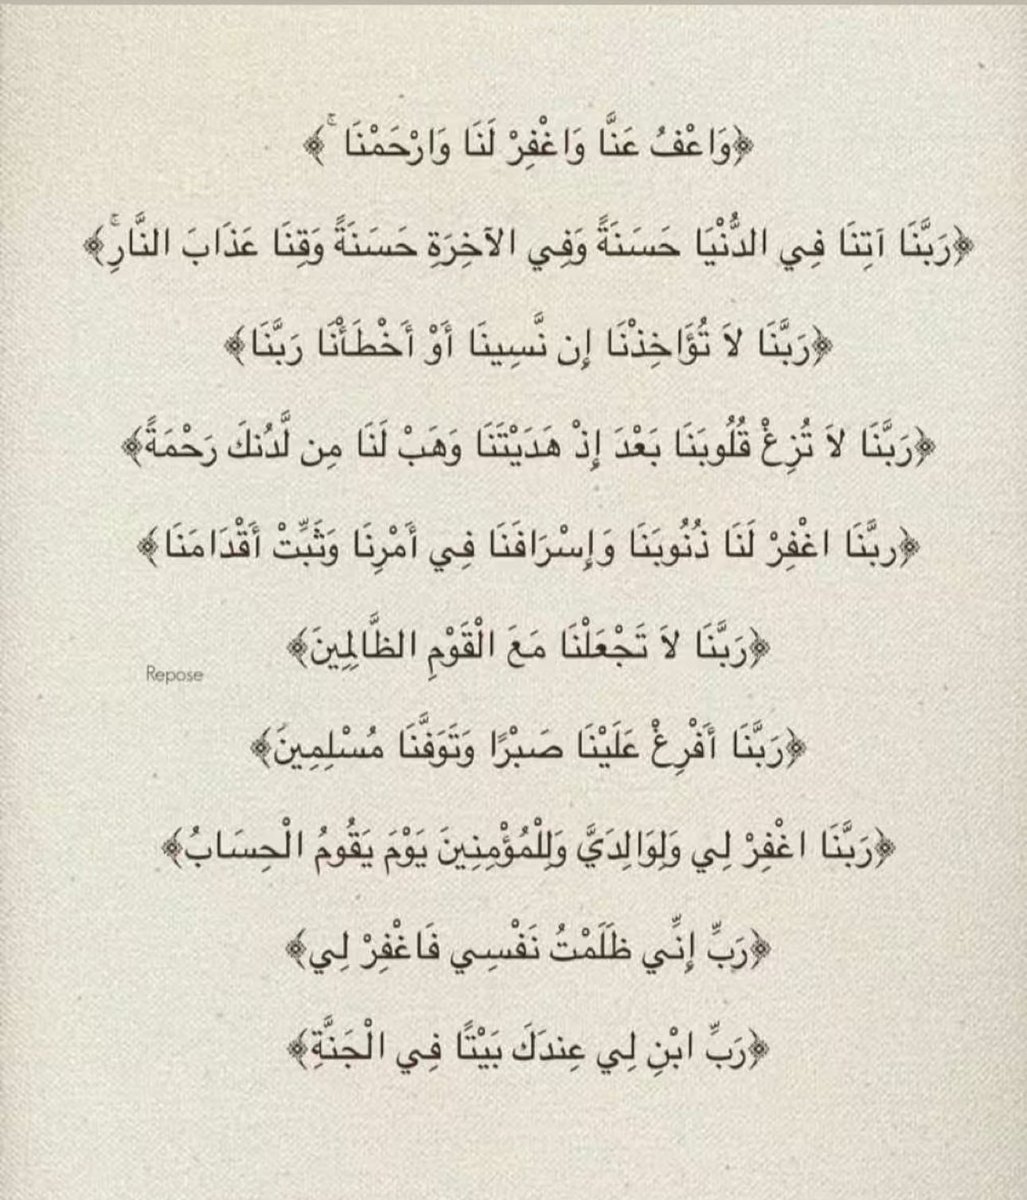 ﴿وَاعْفُ عَنَّا وَاغْفِرْ لَنَا وَارْحَمْنَا ۚ﴾
﴿رَبَّنَا آتِنَا فِي الدُّنْيَا حَسَنَةً وَفِي الآخِرَةِ حَسَنَةً وَقِنَا عَذَابَ النَّارِ ۚ﴾
﴿رَبَّنَا لاَ تُؤَاخِذْنَا إِن نَّسِينَا أَوْ أَخْطَأْنَا رَبَّنَا﴾
﴿رَبَّنَا لاَ تُزِغْ قُلُوبَنَا بَعْدَ إِذْ هَدَيْتَنَا وَهَبْ لَنَا مِن لَّدُنكَ رَحْمَةً﴾
﴿ربَّنَا اغْفِرْ لَنَا ذُنُوبَنَا وَإِسْرَافَنَا فِي أَمْرِنَا وَثَبِّتْ أَقْدَامَنَا﴾
﴿رَبَّنَا لاَ تَجْعَلْنَا مَعَ الْقَوْمِ الظَّالِمِينَ﴾
Repose
﴿رَبَّنَا أَفْرِغْ عَلَيْنَا صَبْرًا وَتَوَفَّنَا مُسْلِمِينَ﴾
﴿رَبَّنَا اغْفِرْ لِي وَلِوَالِدَيَّ وَلِلْمُؤْمِنِينَ يَوْمَ يَقُومُ الْحِسَابُ﴾
﴿رَبِّ إِنِّي ظَلَمْتُ نَفْسِي فَاغْفِرْ لِي﴾
﴿رَبِّ ابْنِ لِي عِندَكَ بَيْتًا فِي الْجَنَّةِ﴾